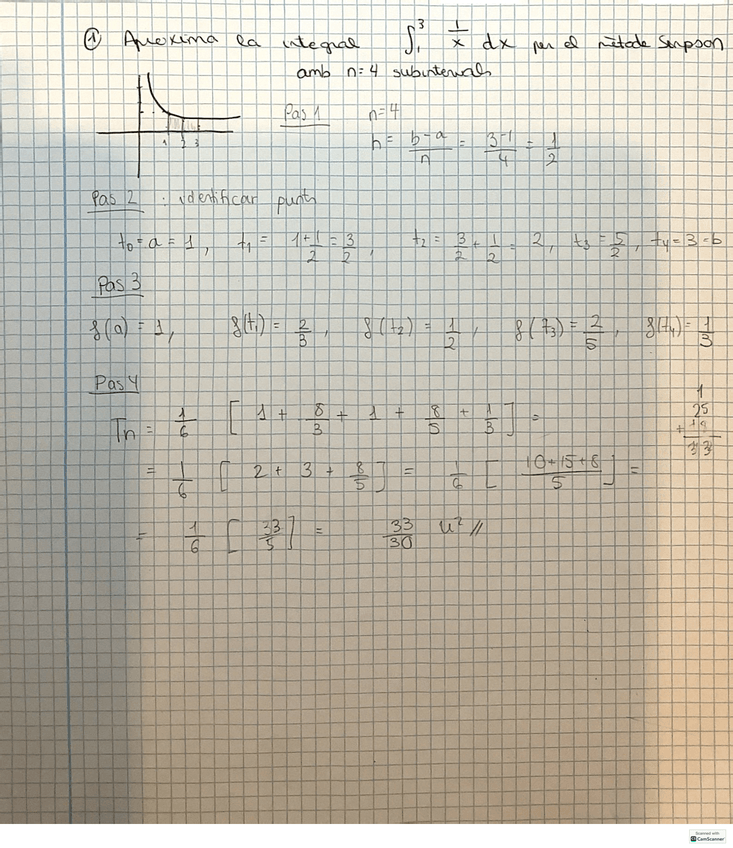 ① Aproxima la integral ∫₁³ 1/x dx per el mètode Simpson
amb n=4 subintervals
1 2 3
Pas 1 n=4
h = b-a/n = 3-1/4 = 1/2
Pas 2 : identificar punts
t₀=a=1, t₁ = 1+1/2=3/2, t₂ = 3/2+1/2 = 2, t₃=5/2, t₄=3=b
Pas 3
f(a)=1, f(t₁)=2/3, f(t₂)=1/2, f(t₃)=2/5, f(t₄)=1/3
Pas 4
Tn = 1/6 [1 + 8/3 + 1 + 8/5 + 1/3] =
= 1/6 [2 + 3 + 8/5] = 1/6 [10+15+8/5] =
= 1/6 [33/5] = 33/30 u² //
1
25
+
33
Scanned with
CamScanner